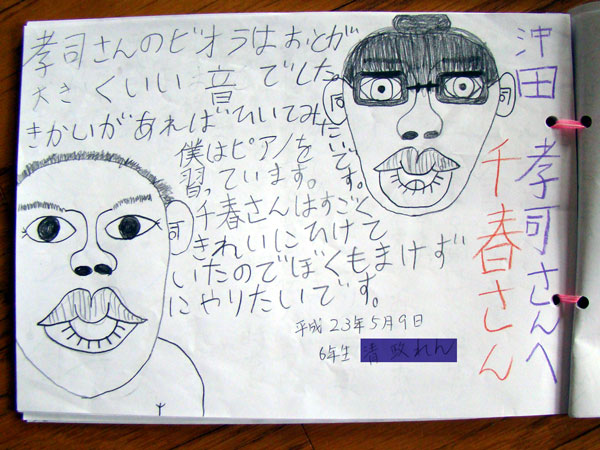 沖田 孝司さんへ
千春さん
孝司さんのビオラはおとが
大きくいい音でした
きかいがあればひいてみたいです。
僕はピアノを
習っています。
千春さんはすごく
きれいにひけて
いたのでぼくもまけず
にやりたいです。
平成23年5月9日
6年生